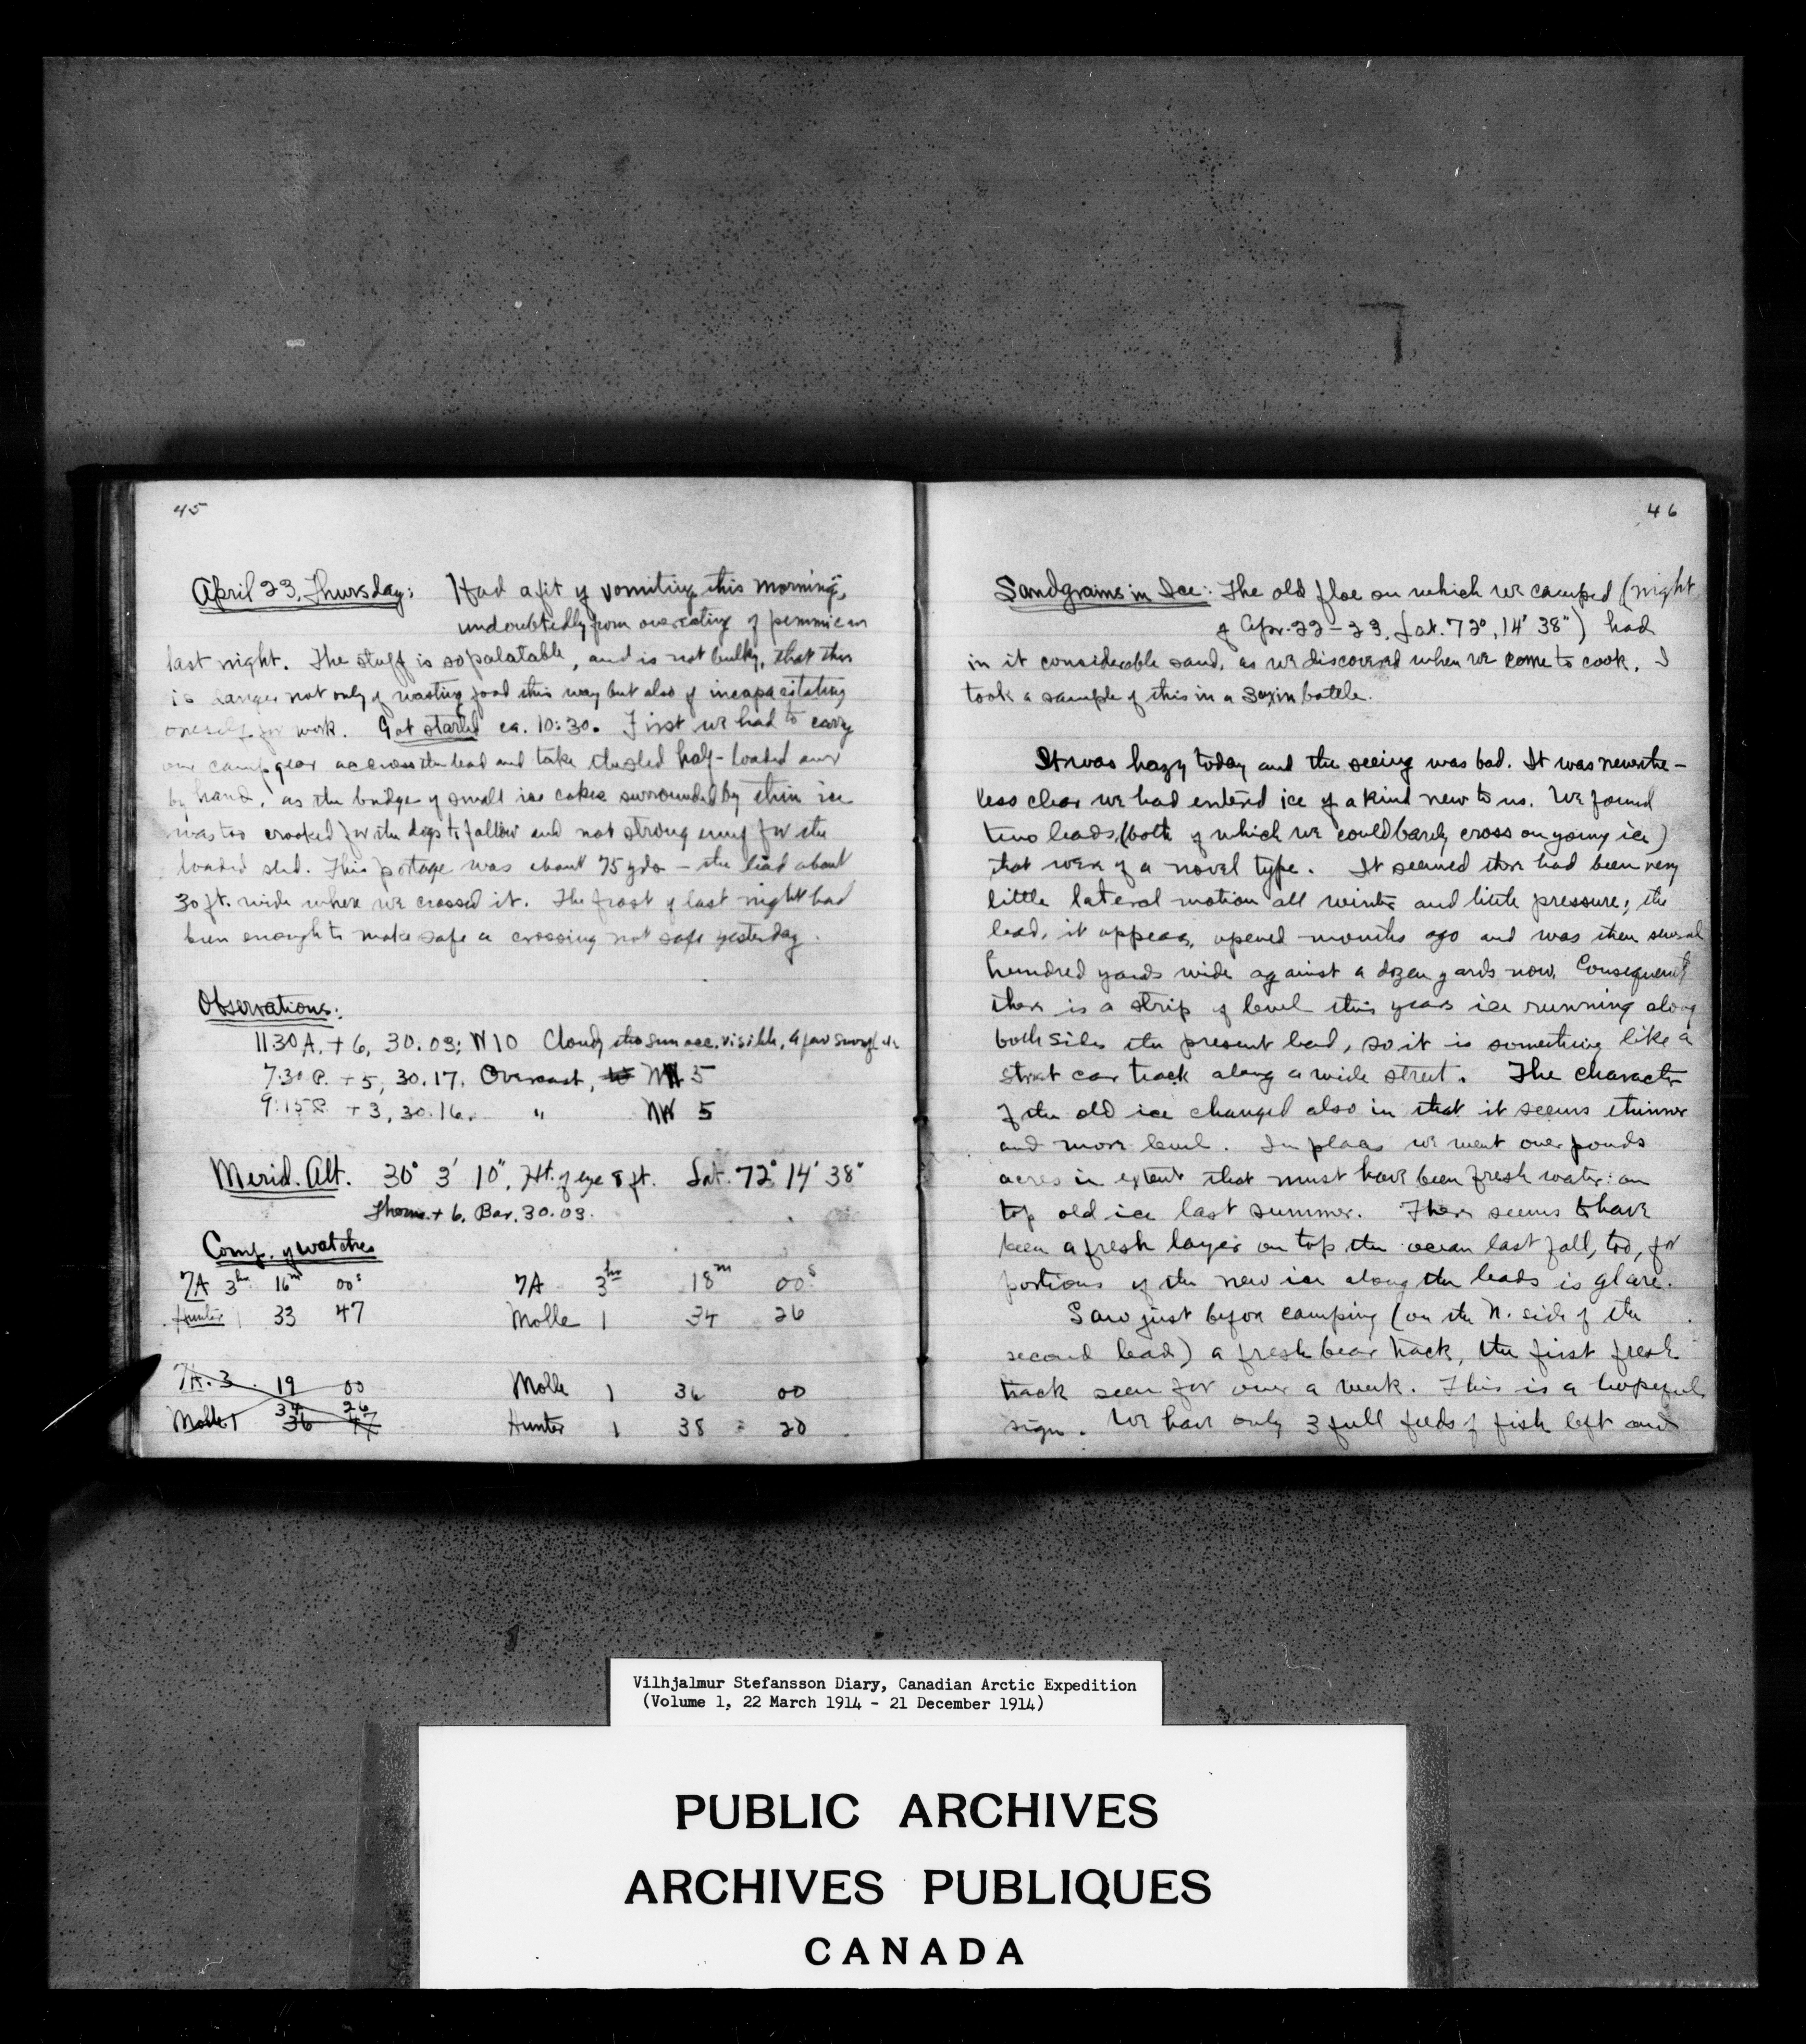 45
April 23, Thursday: Had a fit of vomiting this morning,
undoubtedly from overeating of pemmican
last night. The stuff is so palatable, and is not bulky, that there
is danger not only of wasting food this way but also of incapacitating
oneself for work. Got started ca. 10:30. First we had to carry
our camp gear accross the lead and take the sled half-loaded over
by hand, as the bridge of small ice cakes surrounded by thin ice
was too crooked for the dogs to follow and not strong enuf for the
loaded sled. This portage was about 75 yds – the lead about
30 ft. wide where we crossed it. The frost of last night had
been enough to make safe a crossing not safe yesterday.
Observations:
11:30 A. + 6, 30.03; W 10 Cloudy tho sun occ. visible, a few
7:30 P. + 5, 30.17. Overcast, NW 5
9:15 P. + 3, 30.16. " NW 5
Merid. Alt. 30° 3' 10", Ht. of eye 8 ft. Lat. 72° 14' 38"
Therm. + 6, Bar. 30.03.
Comp. of watches
7A 3hr 16m 00s 7A 3hr 18m 00s
Hunter 1 33 47 Molle 1 34 26
7A. 3 19 00 Molle 1 36 00
34 26
Molle 1 36 47 Hunter 1 38 20
46
Sandgrains in Ice: The old floe on which we camped (night
of Apr. 22–23, Lat. 72°, 14' 38") had
in it considerable sand, as we discovered when we come to cook. I
took a sample of this in a bottle.
It was hazy today and the seeing was bad. It was neverthe-
less clear we had entered ice of a kind new to us. We found
two leads (both of which we could barely cross on young ice)
that were of a novel type. It seemed there had been very
little lateral motion all winter and little pressure; the
lead, it appears, opened months ago and was then several
hundred yards wide against a dozen yards now. Consequently
there is a strip of level this years ice running along
both sides the present lead, so it is something like a
street car track along a wide street. The character
of the old ice changed also in that it seems thinner
and more level. In places we went over ponds
acres in extent that must have been fresh water on
top old ice last summer. There seems to have
been a fresh layer on top the ocean last fall, too, for
portions of the new ice along the leads is glare.
Saw just before camping (on the N. side of the
second lead) a fresh bear track, the first fresh
track seen for over a week. This is a hopeful
sign. We have only 3 full feeds of fish left and
Vilhjalmur Stefansson Diary, Canadian Arctic Expedition
(Volume 1, 22 March 1914 - 21 December 1914)
PUBLIC ARCHIVES
ARCHIVES PUBLIQUES
CANADA